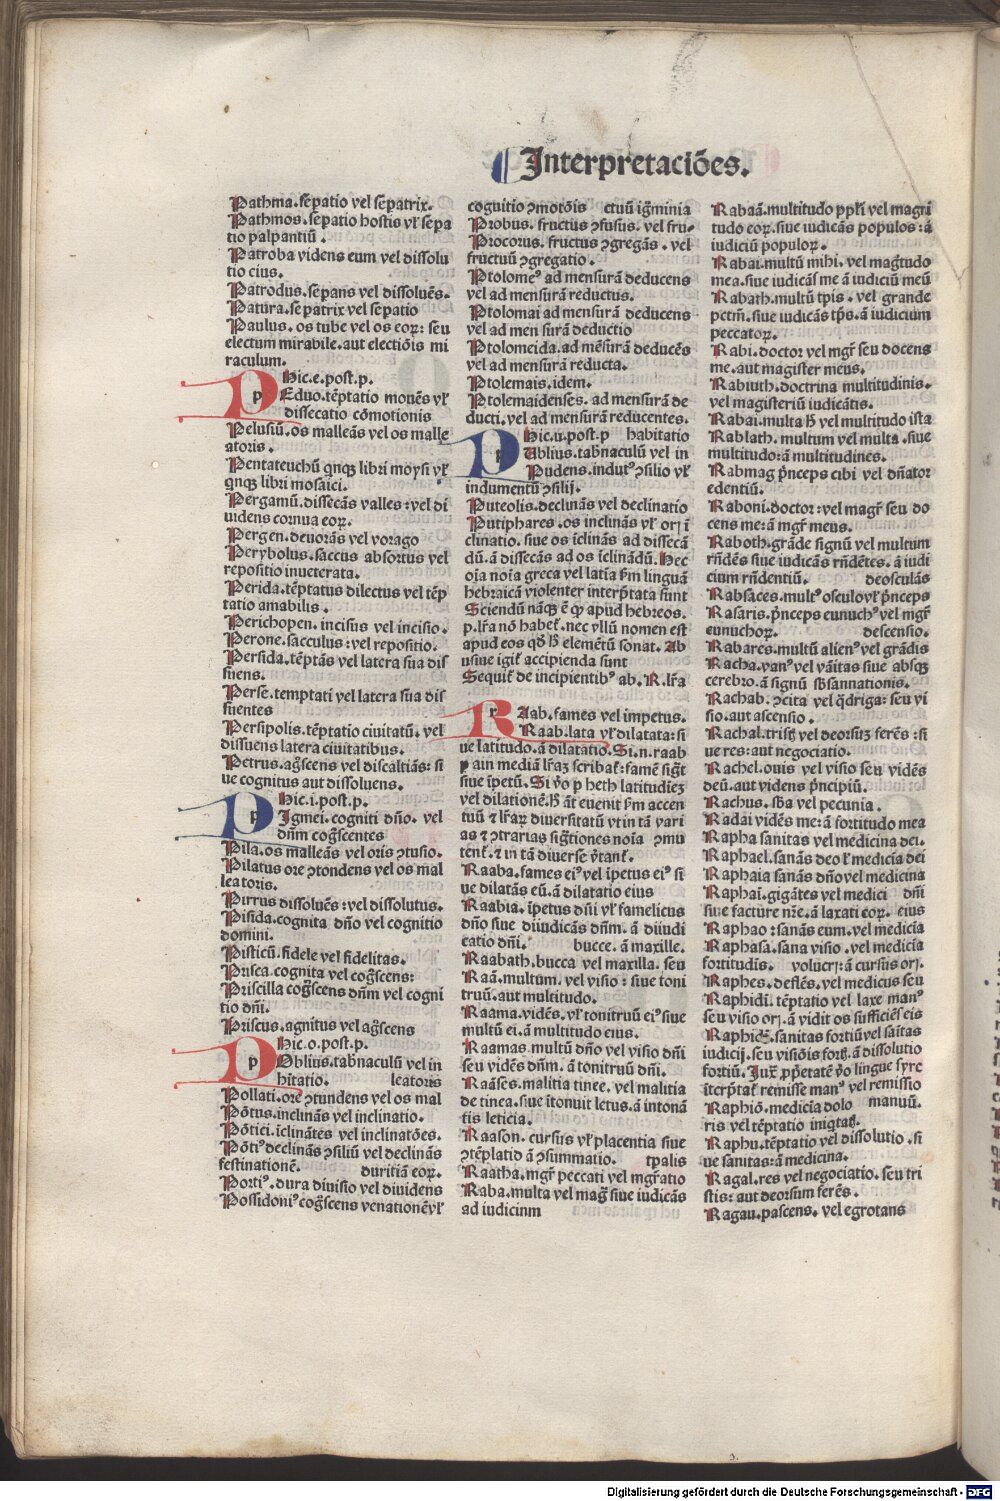 Interpretaciões.
Pathma. sepatio vel sepatrix.
Pathmos. sepatio hostis vł sepa
tio palpantiū.
Patroba videns eum vel dissolu
tio eius.
Patrodus. sepans vel dissoluēs.
Patura. sepatrix vel sepatio
Paulus. os tube vel os eoꝝ: seu
electum mirabile. aut electiōis mi
raculum.
Hic. e. post. p.
p Eduo. tēptatio mouēs vł
dissecatio cōmotionis
Pelusiū. os malleās vel os malle
atoris.
Pentateuchū qnqꝫ libri moysi vł
qnqꝫ libri mosaici.
Pergamū. dissecās valles: vel di
uidens cornua eoꝝ.
Pergen. deuorās vel vorago
Perybolus. saccus absortus vel
repositio inueterata.
Perida. tēptatus dilectus vel tēp
tatio amabilis.
Perichopen. incisus vel incisio.
Perone. sacculus: vel repositio.
Persida. tēptās vel latera sua dif
finens.
Perse. temptati vel latera sua dif
finentes
Persipolis. tēptatio ciuitatū. vel
dissuens latera ciuitatibus.
Petrus. agscens vel discaltiās: si
ue cognitus aut dissoluens.
Hic. i. post. p.
p Igmei. cogniti dño. vel
dnm cogscentes
Pila. os malleās vel oris ꝯtusio.
Pilatus ore ꝯtondens vel os mal
leatoris.
Pirrus dissoluēs: vel dissolutus.
Pisida. cognita dño vel cognitio
domini.
Pisticū. fidele vel fidelitas.
Prisca. cognita vel cogscens:
Priscilla cogscens dnm vel cogni
tio dñi.
Priscus. agnitus vel agscens
Hic. o. post. p.
p Oblius. tabnaculū vel in
hitatio. leatoris
Pollati. ore ꝯtundens vel os mal
Pōtus. inclinās vel inclinatio.
Pōtici. īclināntes vel inclinatōes.
Pōtiꝰ declinās ꝯsiliū vel declinās
festinationē. duritiā eoꝝ.
Portiꝰ. dura diuisio vel diuidens
Possidoniꝰ cogscens venationē vł
cognitio ꝯmotōis ctuū igminia
Probus. fructus ꝯfusus. vel fru-
Procorus. fructus ꝯgregās. vel
fructuū ꝯgregatio.
Ptolomeꝰ ad mensurā deducens
vel ad mensurā reductus.
Ptolomai ad mensurā deducens
vel ad men surā deductio
Ptolomeida. ad mēsurā deducēs
vel ad mensurā reducta.
Ptolemais. idem.
Ptolemaidenses. ad mensurā de
ducti. vel ad mensurā reducentes.
Hic. u. post. p habitatio
p Ublius. tabnaculū vel in
Pudens. indutꝰ ꝯsilio vł
indumentū ꝯsilij.
Puteolis. declināns vel declinatio
Putiphares. os inclināns vł ori ī
clinatio. siue os īclināns ad dissecā
dū. ā dissecās ad os īclināndū. Hec
oīa noīa greca vel latīa ẜm linguā
hebraicā violenter interptata sunt
Sciendū nāqꝫ ē ꝙ apud hebreos.
p. lra nō habeť. nec vllū nomen est
apud eos qd̄ ꝑ elemētū sonat. Ab
usiue igiť accipienda sunt
Sequiť de incipientibꝰ ab. R. lra
r Aab. fames vel impetus.
Raab. lata vł dilatata: si
ue latitudo. ā dilatatio. Si. n. raab
p ain mediā lraꝫ scribať: famē sigt
siue īpetū. Si vō p heth latitudieꝫ
vel dilationē. ꝉꝫ āt euenit ẜm accen
tuū ⁊ lraꝝ diuersitatū vt in tā vari
as ⁊ ꝯtrarias sigtiones noīa ꝯmu
tenť. ⁊ in tā diuerse v̄tanť.
Raaba. fames eiꝰ vel īpetus eiꝰ si
ue dilatās eū. ā dilatatio eius
Raabia. īpetus dñi vł famelicus
dño siue diiudicās dnm. ā diiudi
catio dñi. bucce. ā maxille.
Raabath. bucca vel maxilla. seu
Raā. multum. vel visio: siue toni
truū. aut multitudo.
Raama. vidēs. vł tonitruū eiꝰ siue
multū ei. ā multitudo eius.
Raamas. multū dño vel visio dñi
seu vidēs dnm. ā tonitruū dñi.
Raāses. malitia tinee. vel malitia
de tinea. siue ītonuit letus. ā intonā
tis leticia.
Raason. cursus vł placentia siue
ꝯtēplatio ā ꝯsummatio. tpalis
Raatha. mgr peccati vel mgratio
Raba. multa vel mag siue iudicās
ad iudicinm
Rabaā. multitudo ppli vel magri
tudo eoꝝ. siue iudicās populos: ā
iudiciū populoꝝ.
Rabai. multū mihi. vel magtudo
mea. siue iudicās me ā iudiciū meū
Rabath. multū tpis. vel grande
pctm̄. siue iudicās tp̄s. ā iudicium
peccatoꝝ.
Rabi. doctor vel mgr seu docens
me. aut magister meus.
Rabiuth. doctrina multitudinis.
vel magisteriū iudicātis.
Rabai. multa ꝉꝫ vel multitudo ista
Rablath. multum vel multa. siue
multitudo: ā multitudines.
Rabmag pnceps cibi vel dñator
edentiū.
Raboni. doctor: vel magr seu do
cens me: ā mgr meus.
Raboth. grāde signū vel multum
rn̄dēs siue iudicās rn̄dētes. ā iudi
cium rn̄dentiū. deosculās
Rabsaces. multꝰ osculo vł pnceps
Rasaris. pnceps eunuchꝰ vel mgr
eunuchoꝝ. descensio.
Rabares. multū alienꝰ vel grādis
Racha. vanꝰ vel vānitas siue absqꝫ
cerebro. ā signū ꝉsannationis.
Rachab. ꝯcita vel qdriga: seu vi
sio. aut ascensio.
Rachal. tristꝫ vel deorsūꝫ ferēs: si
ue res: aut negociatio.
Rachel. ouis vel visio seu vidēs
deū. aut videns pncipiū.
Rachus. sba vel pecunia.
Radai vidēs me: ā fortitudo mea
Rapha sanitas vel medicina dei.
Raphael. sanās deo ł medicīa dei
Raphaia sanās dño vel medicina
Raphaī. gigātes vel medici dñi
siue facture nr̄e. ā laxati eoꝝ. eius
Raphao: sanās eum. vel medicīa
Raphasa. sana visio. vel medicīa
fortitudīs. volucri: ā cursus ori.
Raphes. deflēs. vel medicus seu
Raphidī. tēptatio vel laxe manꝰ
seu visio ori. ā vidit os sufficiēs eis
Raphidꝫ. sanitas fortiū vel saītas
iudicij. seu visiōis forꝫ. ā dissolutio
fortiū. Juꝫ ppetatē vo lingue syre
īterptať remisse manꝰ vel remissio
Raphiō. medicīa dolo manuū.
ris vel tēptatio iniqtaꝫ.
Raphu. tēptatio vel dissolutio. si
ue sanitas: ā medicina.
Ragal. res vel negociatio. seu tri
stis: aut deorsum ferēs.
Ragau. pascens. vel egrotans
Digitalisierung gefördert durch die Deutsche Forschungsgemeinschaft - DFG